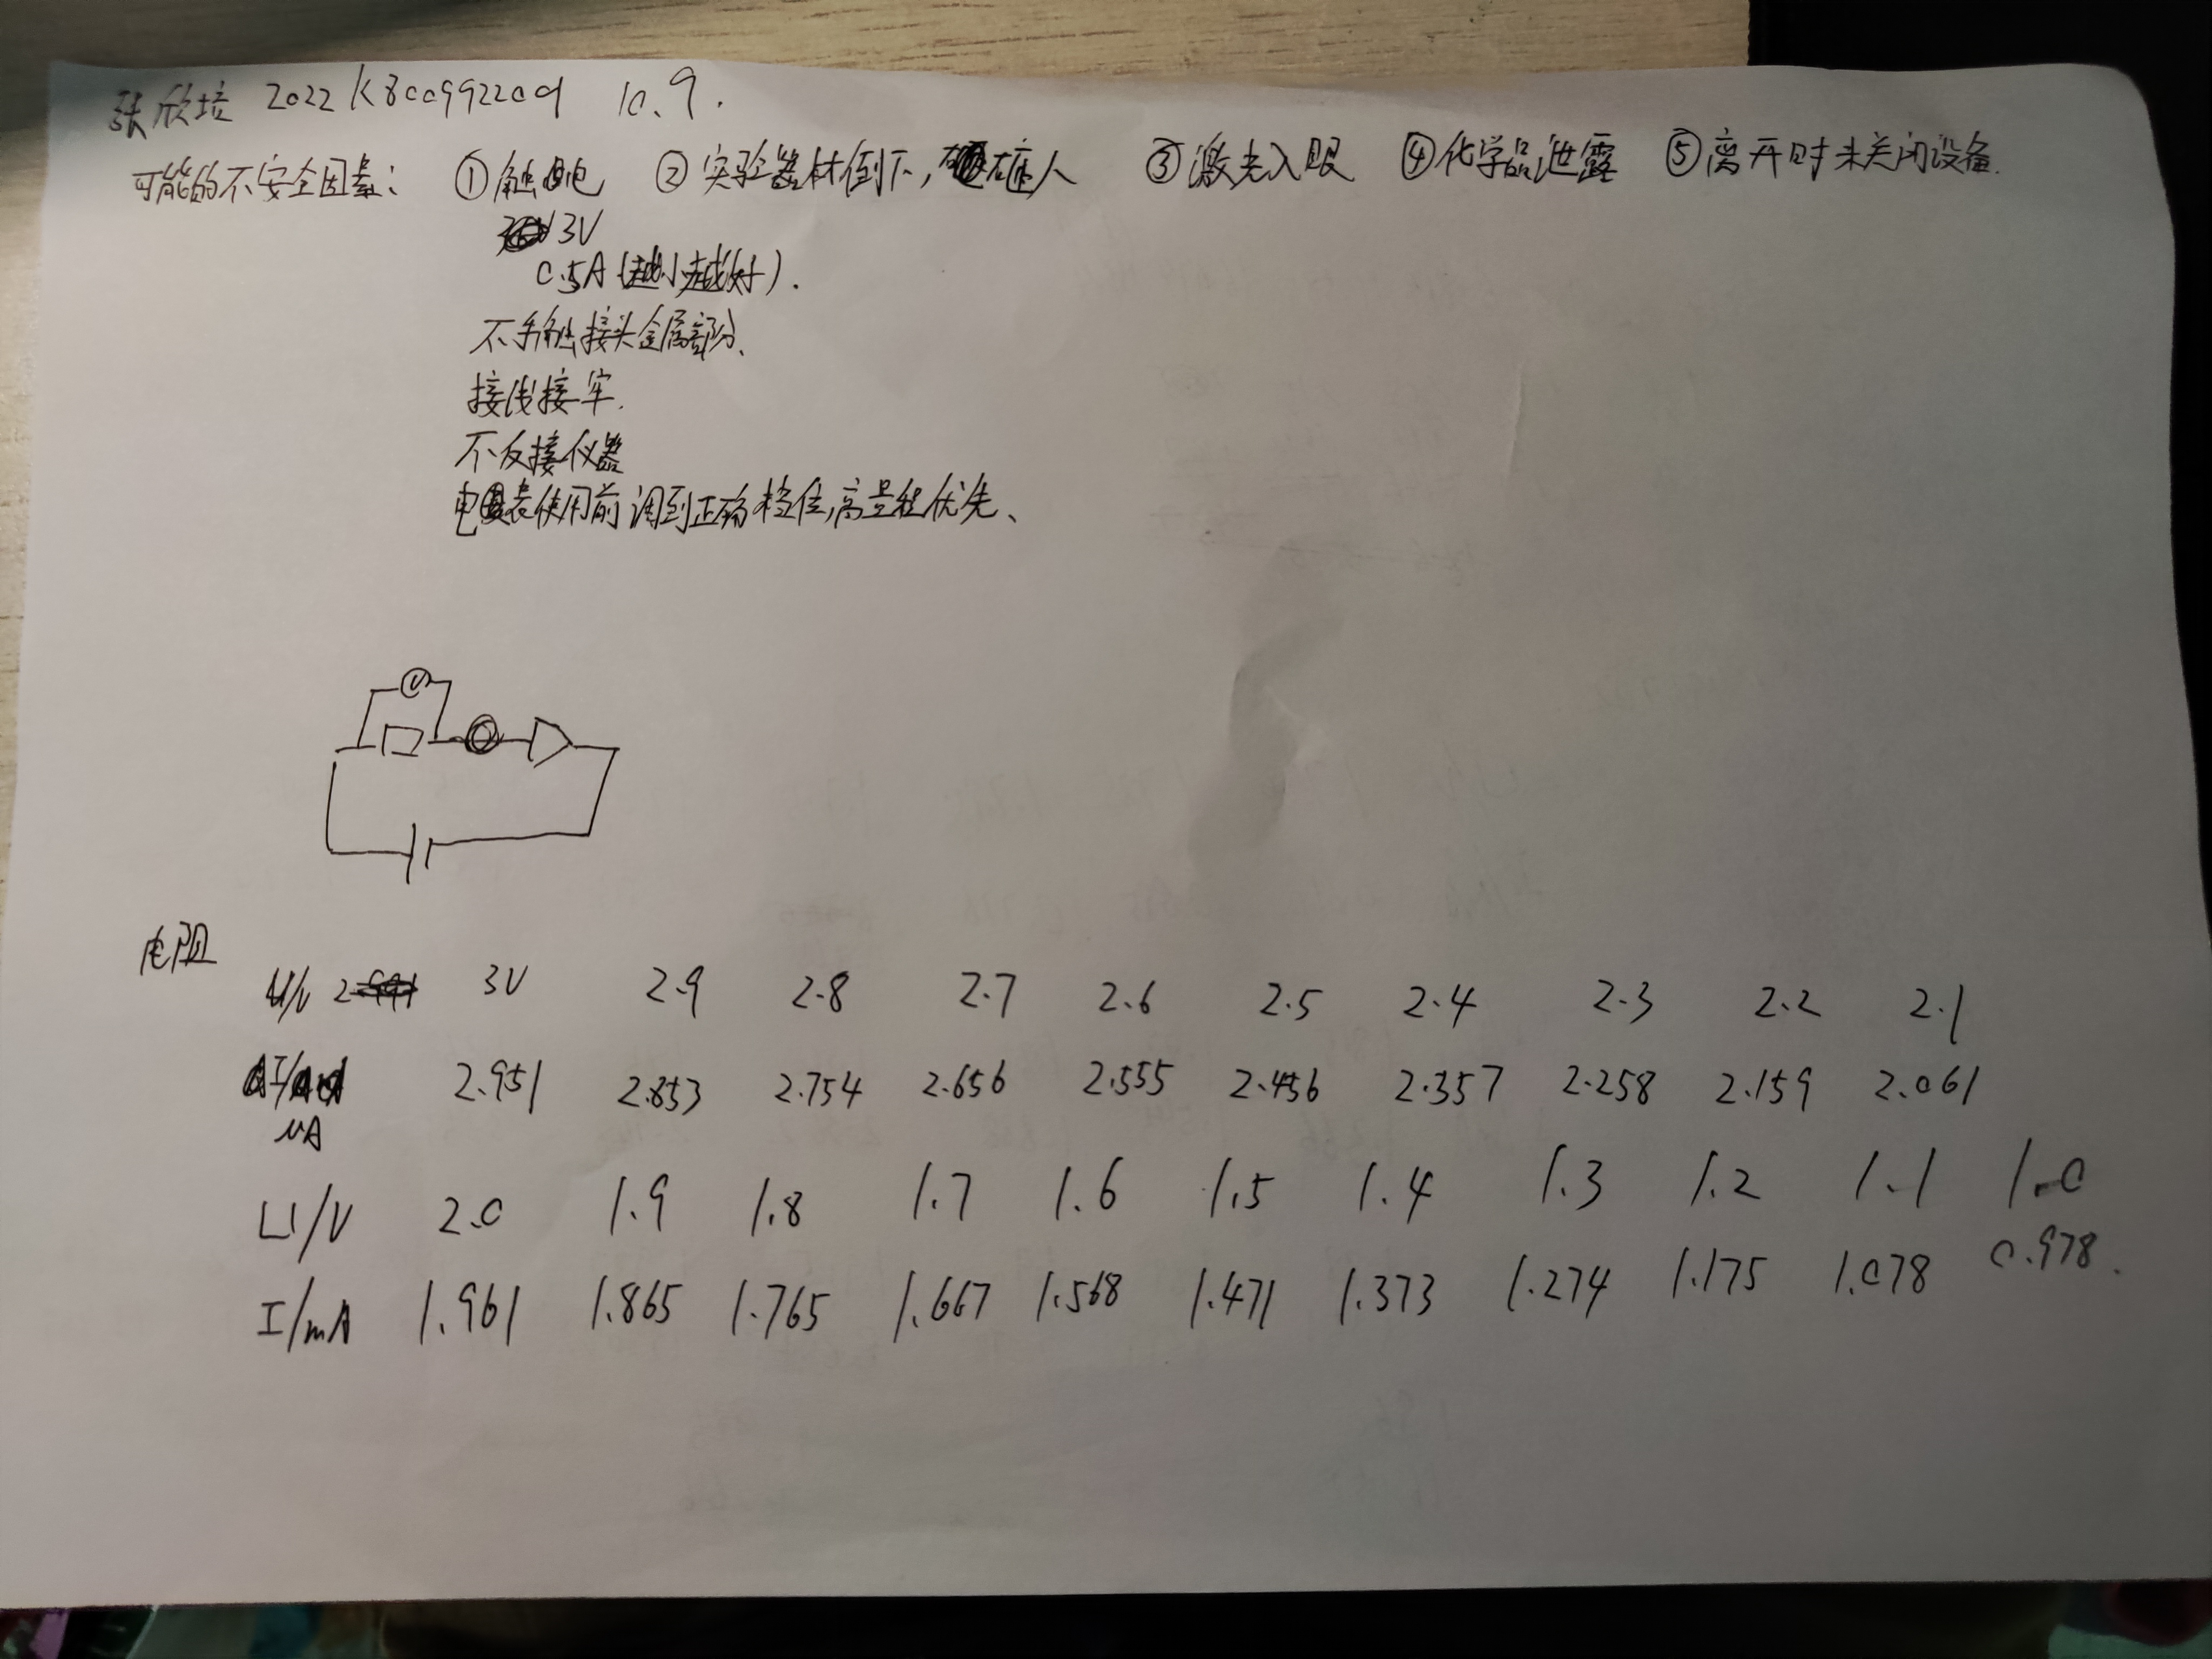 张欣培 2022K8009922009 10.9.
可能的不安全因素: ①触电 ②实验器材倒下,砸人 ③激光入眼 ④化学品泄露 ⑤离开时未关闭设备.
3V
0.5A(越小越好).
不手触接头金属部分、
接线接牢.
不反接仪器
电表使用前调到正确档位,高量程优先、
V
电阻
U/V 3V 2.9 2.8 2.7 2.6 2.5 2.4 2.3 2.2 2.1
I/ 2.951 2.853 2.754 2.656 2.555 2.456 2.357 2.258 2.159 2.061
mA
U/V 2.0 1.9 1.8 1.7 1.6 1.5 1.4 1.3 1.2 1.1 1.0
I/mA 1.961 1.865 1.765 1.667 1.568 1.471 1.373 1.274 1.175 1.078 0.978.